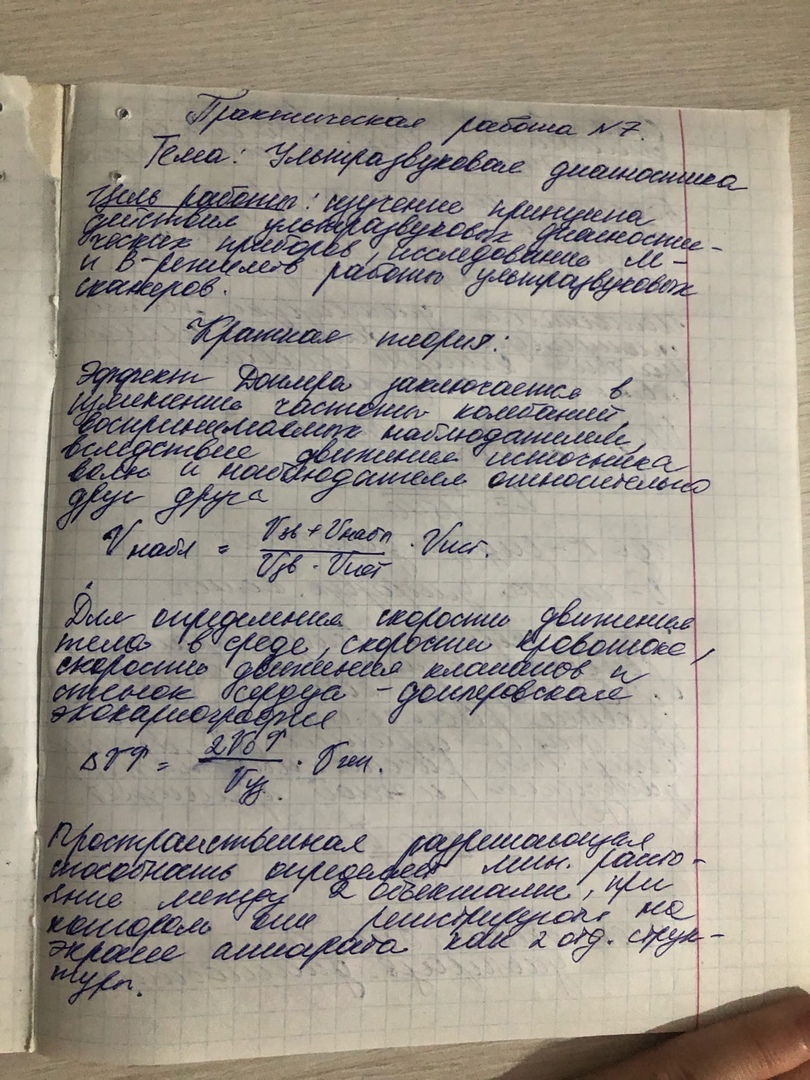 Практическая работа N7.
Тема: Ультразвуковая диагностика
Цель работы: изучение принципа
действия ультразвуковых диагности-
ческих приборов, исследование М-
и В-режимов работы ультразвуковых
сканеров.
Краткая теория:
Эффект Доплера заключается в
изменение частоты колебаний,
воспринимаемых наблюдателем,
вследствие движения источника
волн и наблюдателя относительно
друг друга
Vнабл = Vзв + Vнабл / Vзв - Vист · Vист.
Для определения скорости движения
тела в среде, скорости кровотока,
скорости движения клапанов и
стенок сердца - доплеровская
эхокардиография
Пространственная разрешающая
способность определяет мин. рассто-
яние между 2 объектами, при
котором они регистрируются на
экране аппарата как 2 отд. струк-
туры.